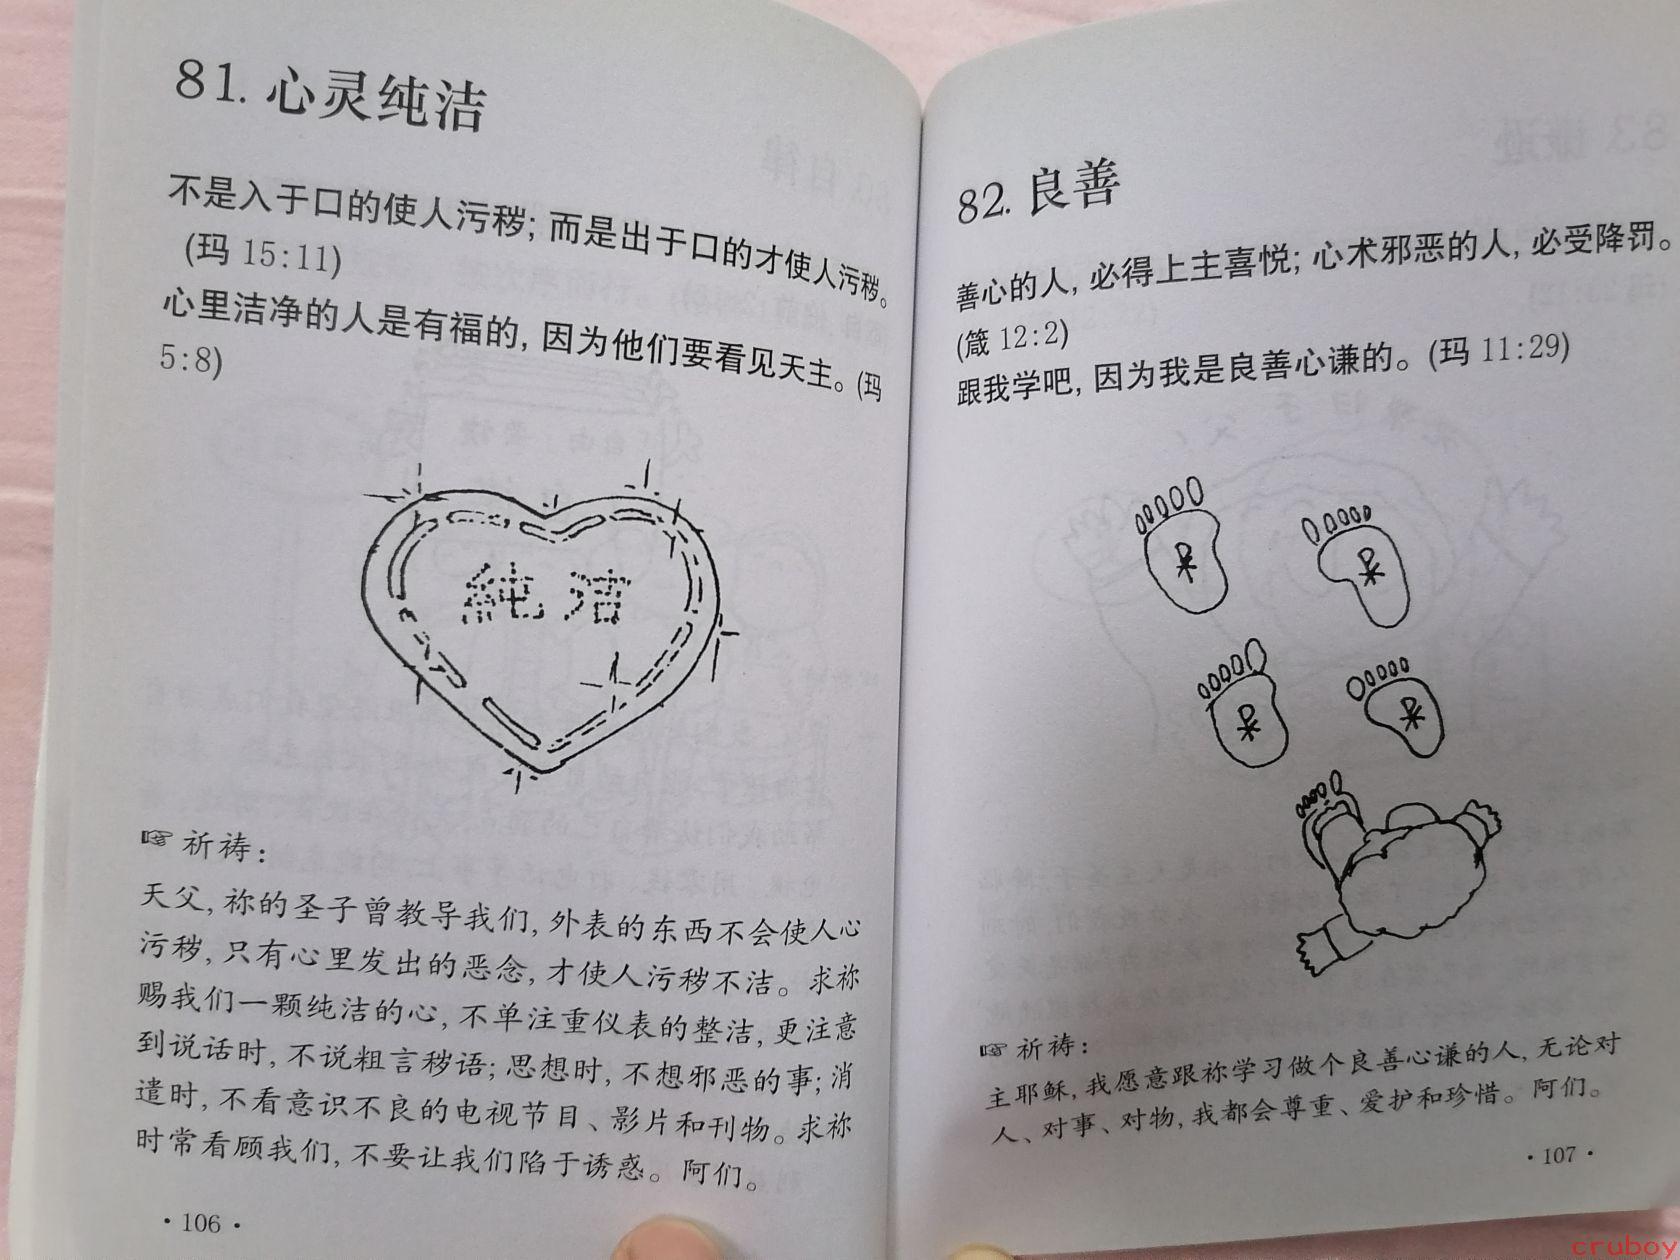 81. 心灵纯洁
不是入于口的使人污秽; 而是出于口的才使人污秽。
(玛 15:11)
心里洁净的人是有福的, 因为他们要看见天主。(玛
5:8)
純 洁
☞ 祈祷:
天父, 祢的圣子曾教导我们, 外表的东西不会使人心
污秽, 只有心里发出的恶念, 才使人污秽不洁。求祢
赐我们一颗纯洁的心, 不单注重仪表的整洁, 更注意
到说话时, 不说粗言秽语; 思想时, 不想邪恶的事; 消
遣时, 不看意识不良的电视节目、影片和刊物。求祢
时常看顾我们, 不要让我们陷于诱惑。阿们。
·106·
82. 良善
善心的人, 必得上主喜悦; 心术邪恶的人, 必受降罚。
(箴 12:2)
跟我学吧, 因为我是良善心谦的。(玛 11:29)
☞ 祈祷:
主耶稣, 我愿意跟祢学习做个良善心谦的人, 无论对
人、对事、对物, 我都会尊重、爱护和珍惜。阿们。
·107·
cruboy